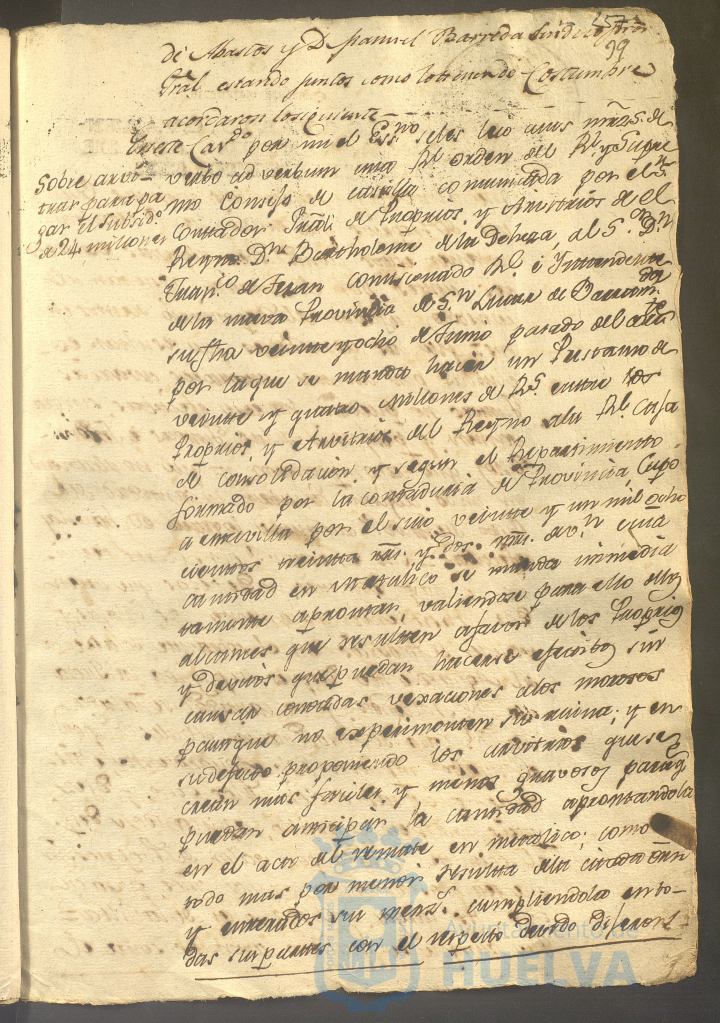 257
99
de Abastos y Dn Manuel Barreda Sindico Pror
Gral estando juntos como lo tienen de Costumbre
acordaron lo siguiente
En este Cavdo por mi el Essno se les leio a sus mrzds de
Sobre arvi-
trar para pa
gar el subsido
de 24 millones
verbo ad verbum una Rl orden del Rl y Supre
mo Consejo de Castilla comunicada por el Sr
Contador Gral de Propios y Arvitrios de el
Reyno Dn Bartholome de la Deheza, al Sor Dn
Franco de Teran comisionado Rl e Yntendente
de la nueva Provincia de Sn Lucar de Barrameda
su fha veinte y ocho de Junio pasado del
por la que se manda hacer un Prestamo de
veinte y quatro Millones de Rs entre los
Propios y Arvitrios del Reyno a la Rl Caja
de consolidacion y segun el Repartimiento
formado por la contaduria de Provincia, Cupo
a esta villa por el suio veinte y un mil ocho
cientos treinta rrs y dos mrs de vn cuia
cantidad en Metalico se manda immedia
tamente aprontar valiendose para ello de los
alcances que resulten a favor de los Propios
y devitos que puedan hacerse efectivos sin
causar conocidas vexaciones a los morosos
para que no experimenten su ruina; y en
su defecto proponiendo los arvitrios que se
crean más faciles y menos gravosos para q
puedan anticipar la cantidad aprontandola
en el acto del remate en metalico; como
todo mas por menor resulta de la citada orn
y enterados sus merzs cumpliendola en to-
das sus partes con el respeto devido dijeron
Ayuntamiento de
HUELVA